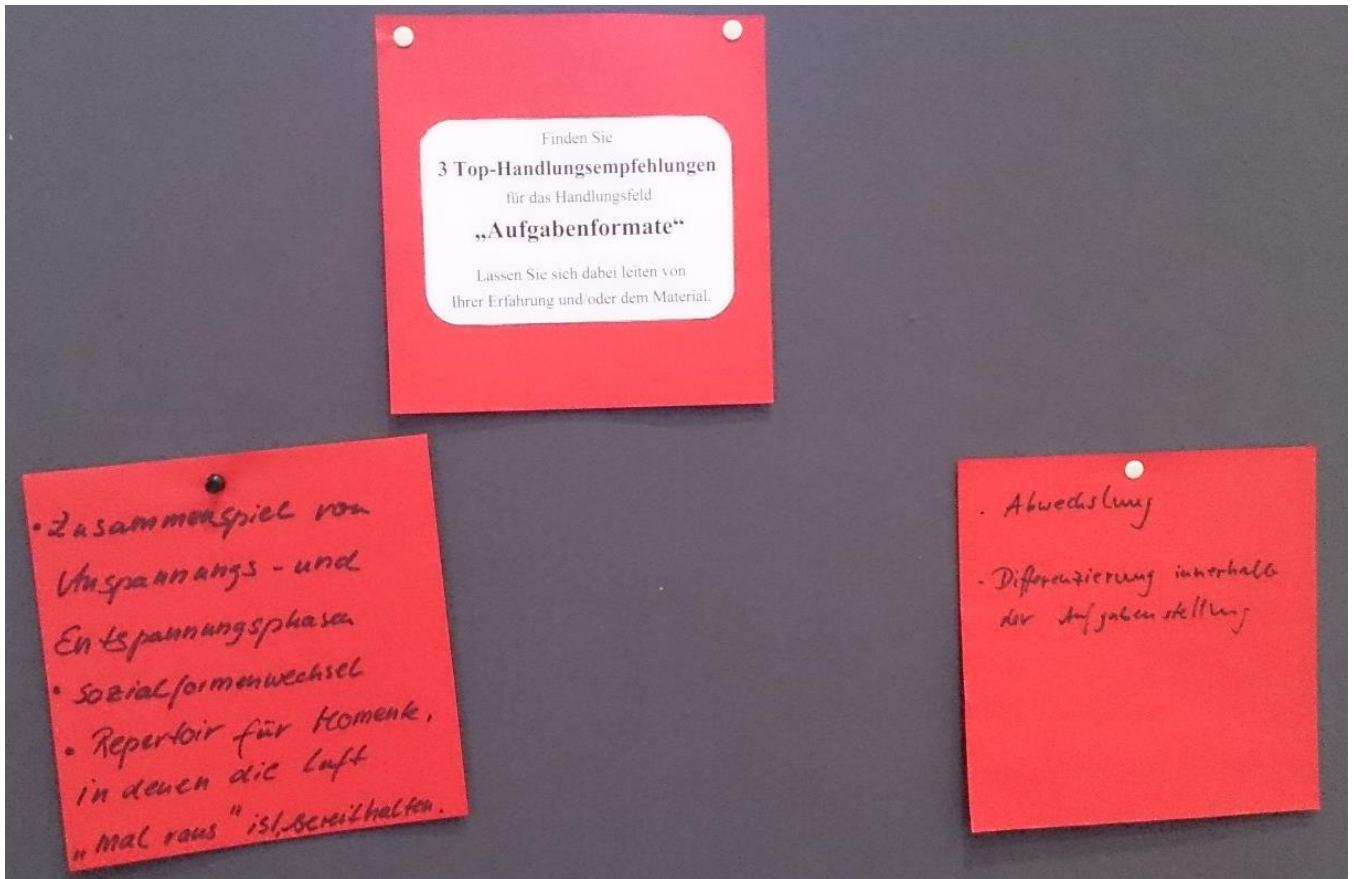 Finden Sie
3 Top-Handlungsempfehlungen
für das Handlungsfeld
„Aufgabenformate“
Lassen Sie sich dabei leiten von
Ihrer Erfahrung und/oder dem Material.
• Zusammenspiel von
Anspannungs- und
Entspannungsphasen
• Sozialformenwechsel
• Repertoir für Momente,
in denen die Luft
„mal raus“ ist, bereithalten.
- Abwechslung
- Differenzierung innerhalb
der Aufgabenstellung